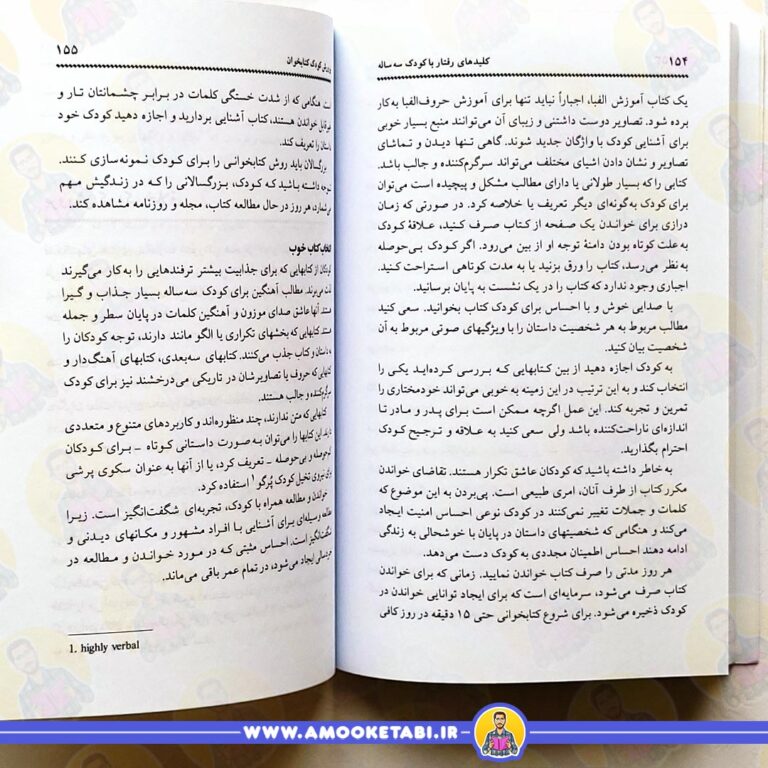 ۱۵۴
کلیدهای رفتار با کودک سه ساله
یک کتاب آموزش الفبا، اجباراً نباید تنها برای آموزش حروف‌الفبا به‌کار
برده شود. تصاویر دوست داشتنی و زیبای آن می‌توانند منبع بسیار خوبی
برای آشنایی کودک با واژگان جدید شوند. گاهی تنها دیدن و تماشای
تصاویر و نشان دادن اشیای مختلف می‌تواند سرگرم‌کننده و جالب باشد.
کتابی را که بسیار طولانی یا دارای مطالب مشکل و پیچیده است می‌توان
برای کودک به‌گونه‌ای دیگر تعریف یا خلاصه کرد. در صورتی که زمان
درازی برای خواندن یک صفحه از کتاب صرف کنید، علاقهٔ کودک
به علت کوتاه بودن دامنهٔ توجه او از بین می‌رود. اگر کودک بی‌حوصله
به نظر می‌رسد، کتاب را ورق بزنید یا به مدت کوتاهی استراحت کنید.
اجباری وجود ندارد که کتاب را در یک نشست به پایان برسانید.
با صدایی خوش و با احساس برای کودک کتاب بخوانید. سعی کنید
مطالب مربوط به هر شخصیت داستان را با ویژگیهای صوتی مربوط به آن
شخصیت بیان کنید.
به کودک اجازه دهید از بین کتابهایی که بررسی کرده‌اید یکی را
انتخاب کند و به این ترتیب در این زمینه به خوبی می‌تواند خودمختاری را
تمرین و تجربه کند. این عمل اگرچه ممکن است برای پدر و مادر تا
اندازه‌ای ناراحت‌کننده باشد ولی سعی کنید به علاقه و ترجیح کودک
احترام بگذارید.
به خاطر داشته باشید که کودکان عاشق تکرار هستند. تقاضای خواندن
مکرر کتاب از طرف آنان، امری طبیعی است. پی‌بردن به این موضوع که
کلمات و جملات تغییر نمی‌کنند در کودک نوعی احساس امنیت ایجاد
می‌کند و هنگامی که شخصیتهای داستان در پایان با خوشحالی به زندگی
ادامه دهند احساس اطمینان مجددی به کودک دست می‌دهد.
هر روز مدتی را صرف کتاب خواندن نمایید. زمانی که برای خواندن
کتاب صرف می‌شود، سرمایه‌ای است که برای ایجاد توانایی خواندن در
کودک ذخیره می‌شود. برای شروع کتابخوانی حتی ۱۵ دقیقه در روز کافی
کودک کتابخوان
۱۵۵
هنگامی که از شدت خستگی کلمات در برابر چشمانتان تار و
خواندن هستند، کتاب آشنایی بردارید و اجازه دهید کودک خود
را تعریف کند.
بزرگسالان باید روش کتابخوانی را برای کودک نمونه‌سازی کنند.
داشته باشید که کودک، بزرگسالانی را که در زندگیش مهم
هر روز در حال مطالعه کتاب، مجله و روزنامه مشاهده کند.
انتخاب کتاب خوب
کودکان از کتابهایی که برای جذابیت بیشتر ترفندهایی را به‌کار می‌گیرند
می‌برند. مطالب آهنگین برای کودک سه‌ساله بسیار جذاب و گیرا
آنها عاشق صدای موزون و آهنگین کلمات در پایان سطر و جمله
کتابهایی که بخشهای تکراری یا الگو مانند دارند، توجه کودکان را
داستان و کتاب جذب می‌کنند. کتابهای سه‌بعدی، کتابهای آهنگ‌دار و
کتابهایی که حروف یا تصاویرشان در تاریکی می‌درخشند نیز برای کودک
سرگرم‌کننده و جالب هستند.
کتابهایی که متن ندارند، چند منظوره‌اند و کاربردهای متنوع و متعددی
این کتابها را می‌توان به صورت داستانی کوتاه ــ برای کودکان
کم‌حوصله و بی‌حوصله ــ تعریف کرد، یا از آنها به عنوان سکوی پرشی
برای نیروی تخیل کودک پُرگو۱ استفاده کرد.
خواندن و مطالعه همراه با کودک، تجربه‌ای شگفت‌انگیز است. زیرا
مطالعه وسیله‌ای برای آشنایی با افراد مشهور و مکانهای دیدنی و
شگفت‌انگیز است. احساس مثبتی که در مورد خواندن و مطالعه در
خردسالی ایجاد می‌شود، در تمام عمر باقی می‌ماند.
1. highly verbal
WWW.AMOOKETABI.IR